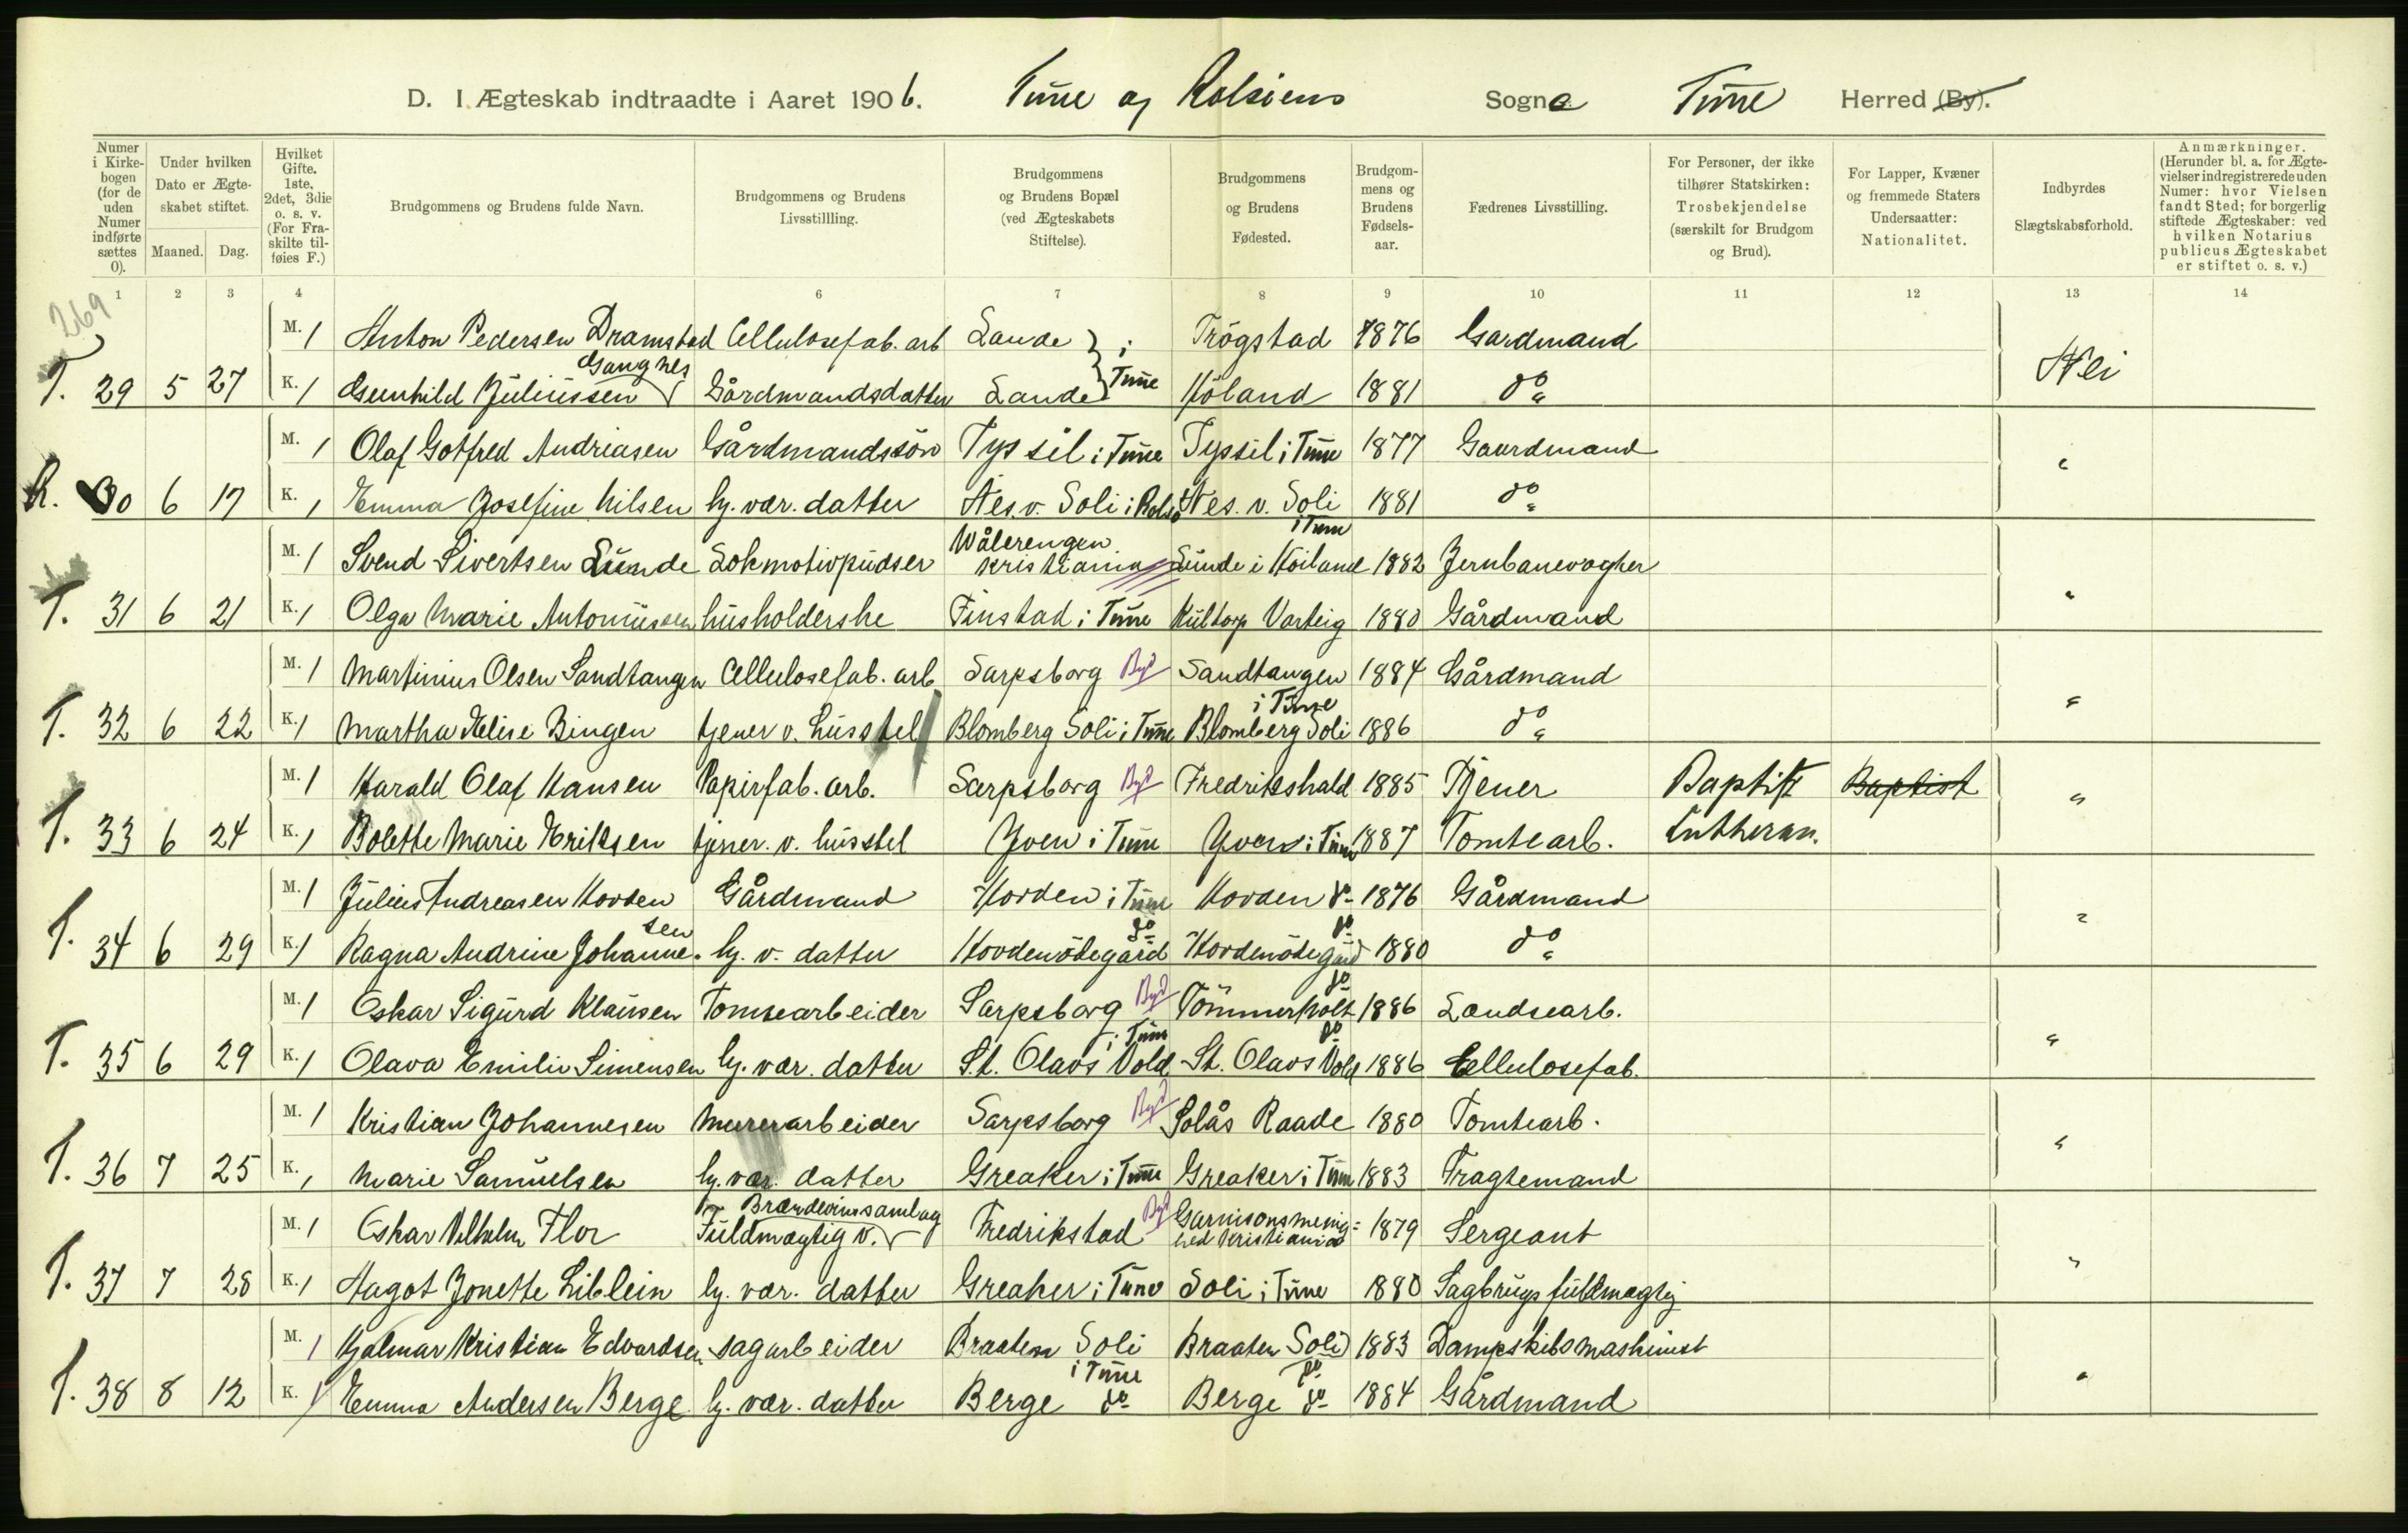 D. I Ægteskab indtraadte i Aaret 1906. Tune og Rolsöens Sogne Tune Herred (By).
Numer i Kirkebogen (for de uden Numer indførte sættes 0). Under hvilken Dato er Ægteskabet stiftet. Maaned. Dag. Hvilket Gifte. 1ste, 2det, 3die o. s. v. (For Fraskilte tilføies F.) Brudgommens og Brudens fulde Navn. Brudgommens og Brudens Livsstillling. Brudgommens og Brudens Bopæl (ved Ægteskabets Stiftelse). Brudgommens og Brudens Fødested. Brudgommens og Brudens Fødselsaar. Fædrenes Livsstilling. For Personer, der ikke tilhører Statskirken: Trosbekjendelse (særskilt for Brudgom og Brud). For Lapper, Kvæner og fremmede Staters Undersaatter: Nationalitet. Indbyrdes Slægtskabsforhold. Anmærkninger. (Herunder bl. a. for Ægtevielser indregistrerede uden Numer: hvor Vielsen fandt Sted; for borgerlig stiftede Ægteskaber: ved hvilken Notarius publicus Ægteskabet er stiftet o. s. v.)
1 2 3 4 6 7 8 9 10 11 12 13 14
269
M. 1 Anton Pedersen Dramstad Cellulosefab. arb Lande } i Tune Trögstad 1876 Gardmand Nei
T. 29 5 27 K. 1 Gunhild Juliussen Ganghes Gårdmandsdatter Lande Höland 1881 do
M. 1 Olaf Gotfred Andriasen Gårdmandssön Tyssil i Tune Tyssil i Tune 1877 Gaardmand "
R. 30 6 17 K. 1 Emma Josefine Nilsen hj. vær. datter Nes. v. Soli i Rolsö Nes. v. Soli i Tune 1881 do
M. 1 Svend Sivertsen Lunde Lokmotivpudser Wålerengen Kristiania Lunde i Höiland 1882 Jernbanevogter "
T. 31 6 21 K. 1 Olga Marie Antoniussen husholderske Finstad i Tune Kultorp Varteig 1880 Gårdmand
M. 1 Martinius Olsen Sandtangen Cellulosefab. arb Sarpsborg By Sandtangen i Tune 1884 Gårdmand "
T. 32 6 22 K. 1 Martha Elise Bingen tjener v. husstel Blomberg Soli i Tune Blomberg Soli 1886 do
M. 1 Harald Olaf Hansen Papirfab. arb. Sarpsborg By Fredrikshald 1885 Tjener Baptist Baptist "
T. 33 6 24 K. 1 Bolette Marie Eriksen tjener. v. husstel Yven i Tune Yven i Tune 1887 Tomtearb. Lutheran.
M. 1 Julius Andreasen Hovden Gårdmand Hovden i Tune Hovden do 1876 Gårdmand "
T. 34 6 29 K. 1 Ragna Andrine Johannesen hj. v. datter Hovdenödegård do Hovdenödegård do 1880 do
M. 1 Oskar Sigurd Klausen Tomtearbeider Sarpsborg By Tömmerholt do 1886 Landsearb. "
T. 35 6 29 K. 1 Olava Emilie Simensen hj. vær. datter St. Olavs Vold i Tune St. Olavs Vold do 1886 Cellulosefab.
M. 1 Kristian Johannesen Murerarbeider Sarpsborg By Solås Raade 1880 Tomtearb. "
T. 36 7 25 K. 1 Marie Samuelsen hj. vær. datter Greaker i Tune Greaker i Tune 1883 Fragtemand
M. 1 Oskar Vilhelm Flor Fuldmægtig v. Brændevinssamlag Fredrikstad By Garnisonsmenighed Kristiania 1879 Sergeant "
T. 37 7 28 K. 1 Hagot Jonette Liblein hj. vær. datter Greaker i Tune Soli i Tune 1880 Sagbrugsfuldmægtig
M. 1 Hjalmar Kristian Edvardsen sagarbeider Braaten Soli i Tune Braaten Soli do 1883 Dampskibsmaskinist "
T. 38 8 12 K. 1 Emma Andersen Berge hj. vær. datter Berge do Berge do 1884 Gårdmand